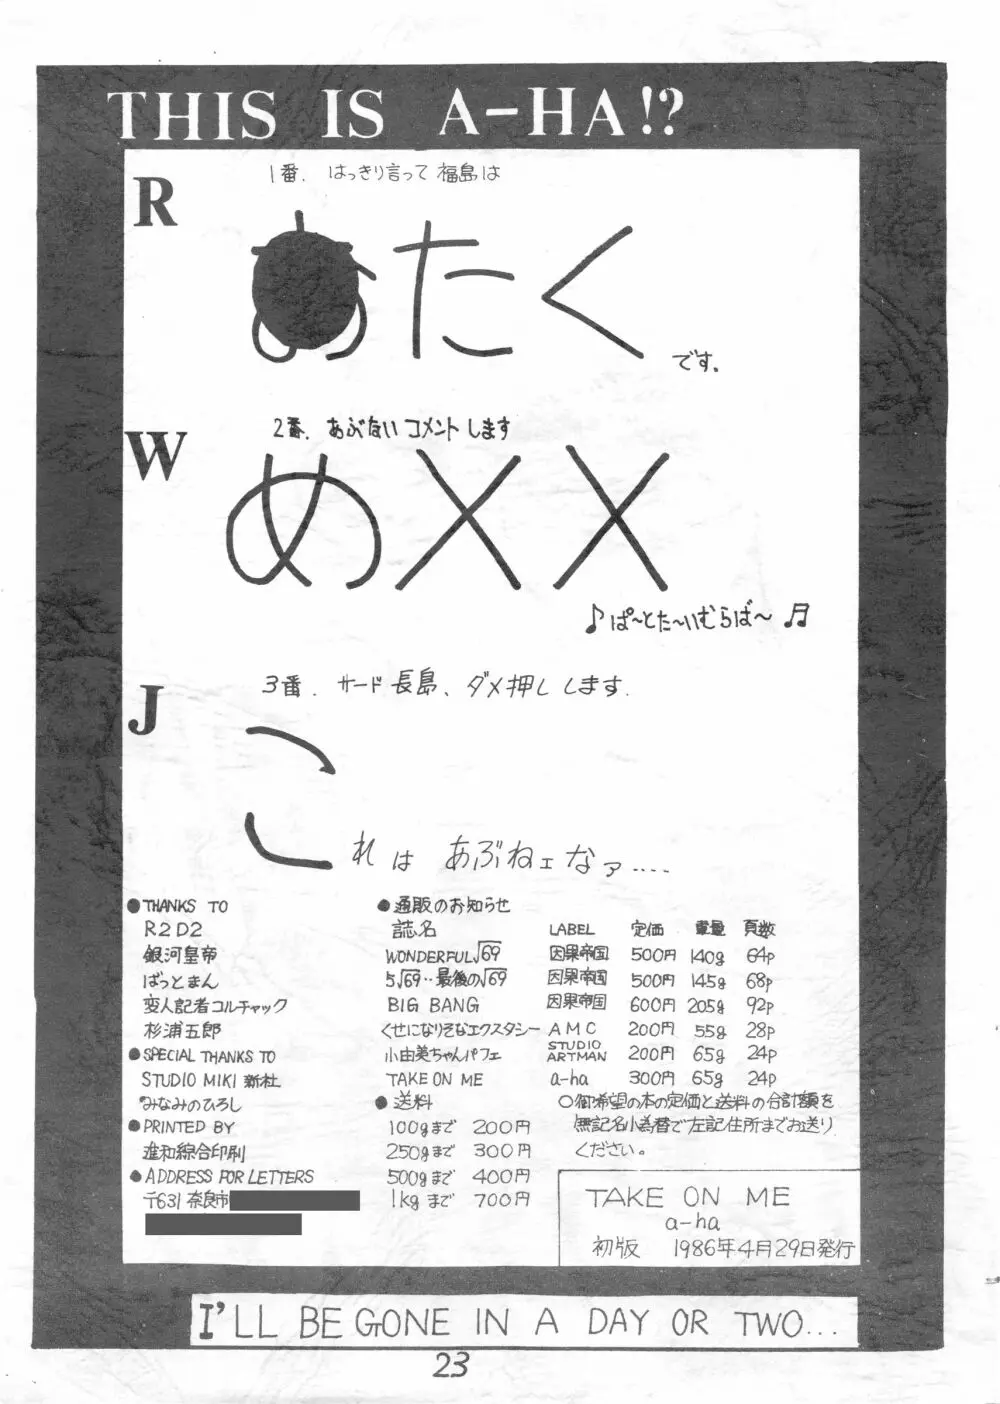 THIS IS A-HA!?
R
1番. はっきり言って 福島は
おたく
です。
W
2番. あぶない コメント します
めXX
♪ ぱ〜とた〜いむらば〜 ♬
J
3番. サード 長島、ダメ押し します.
こ
れは あぶねェなァ....
●THANKS TO
R2D2
銀河皇帝
ばっとまん
変人記者コルチャック
杉浦五郎
●SPECIAL THANKS TO
STUDIO MIKI 新社
みなみのひろし
●PRINTED BY
進和綜合印刷
●ADDRESS FOR LETTERS
〒631 奈良市
●通販のお知らせ
誌名 LABEL 定価 重量 頁数
WONDERFUL√69 因果帝国 500円 140g 64p
5√69‥最後の√69 因果帝国 500円 145g 68p
BIG BANG 因果帝国 600円 205g 92p
くせになりそなエクスタシー AMC 200円 55g 28p
小由美ちゃんパフェ STUDIO ARTMAN 200円 65g 24p
TAKE ON ME a-ha 300円 65g 24p
●送料
100gまで 200円
250gまで 300円
500gまで 400円
1kgまで 700円
○御希望の本の定価と送料の合計額を
無記名小為替で左記住所までお送り
ください。
TAKE ON ME
a-ha
初版 1986年4月29日発行
I'LL BE GONE IN A DAY OR TWO...
23